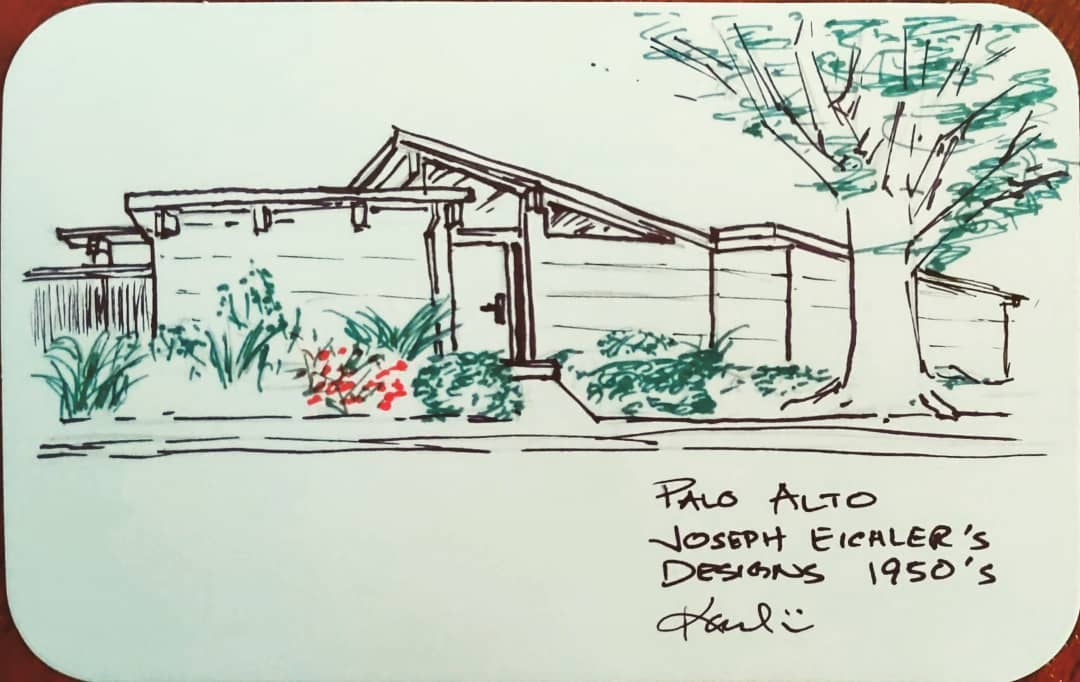 PALO ALTO
JOSEPH EICHLER'S
DESIGNS 1950's